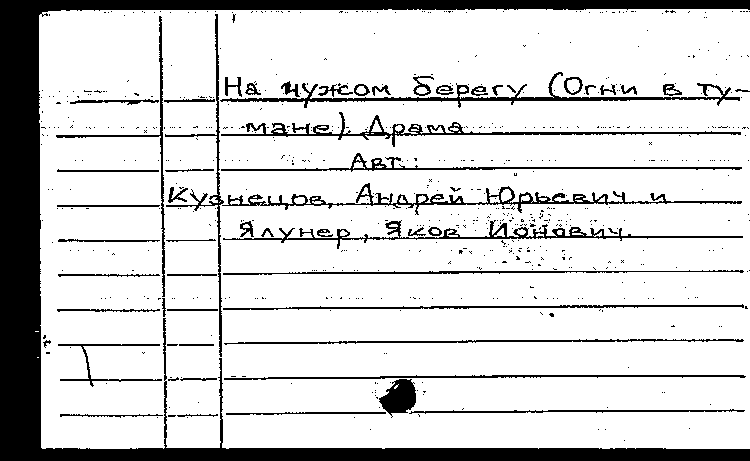 На чужом берегу (Огни в ту-
мане). Драма
Авт.:
Кузнецов, Андрей Юрьевич и
Ялунер, Яков Ионович.